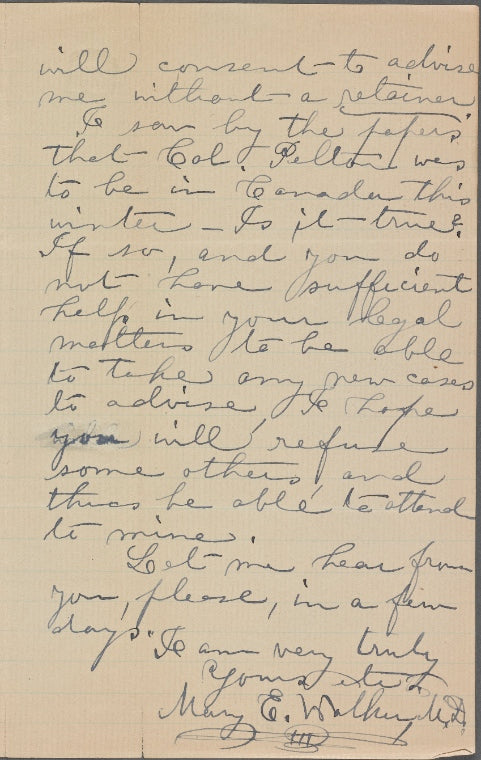 will consent to advise
me without a retainer
I saw by the papers
that Col. Pelton was
to be in Canada this
winter – Is it true?
If so, and you do
not have sufficient
help in your legal
matters to be able
to take any new cases
to advise, I hope
you will refuse
some others, and
thus be able to attend
to mine.
Let me hear from
you, please, in a few
days. I am very truly
Yours etc.
Mary E. Walker M.D.